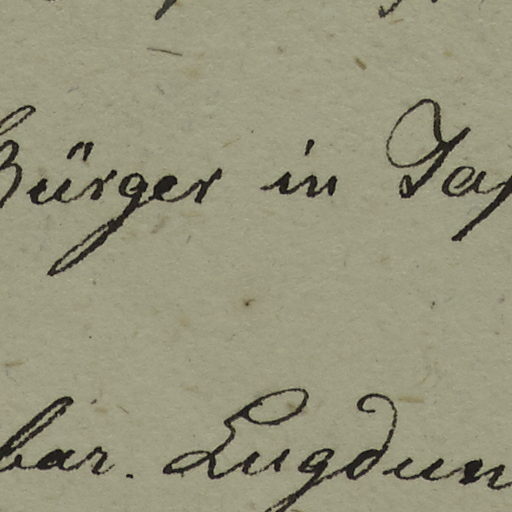 Bürger in
bar. Lugdun